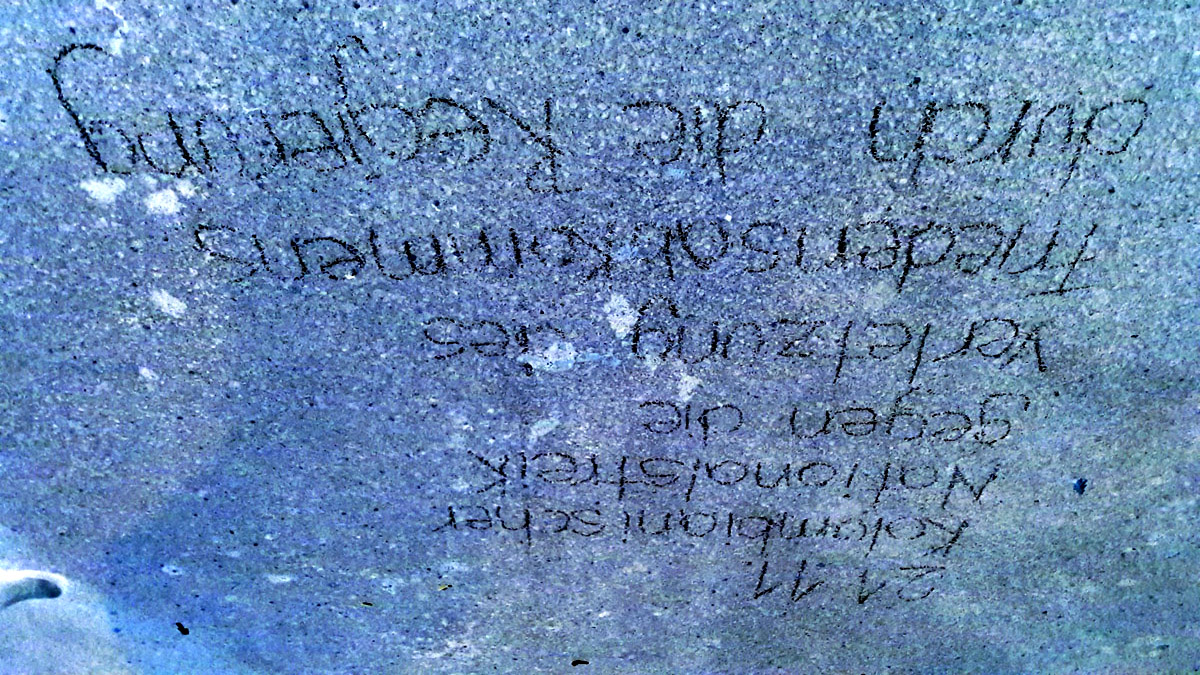 21.11
Kolombianischer
Nationalstreik
gegen die
Verletzung des
friedensabkommens
durch die Regierung